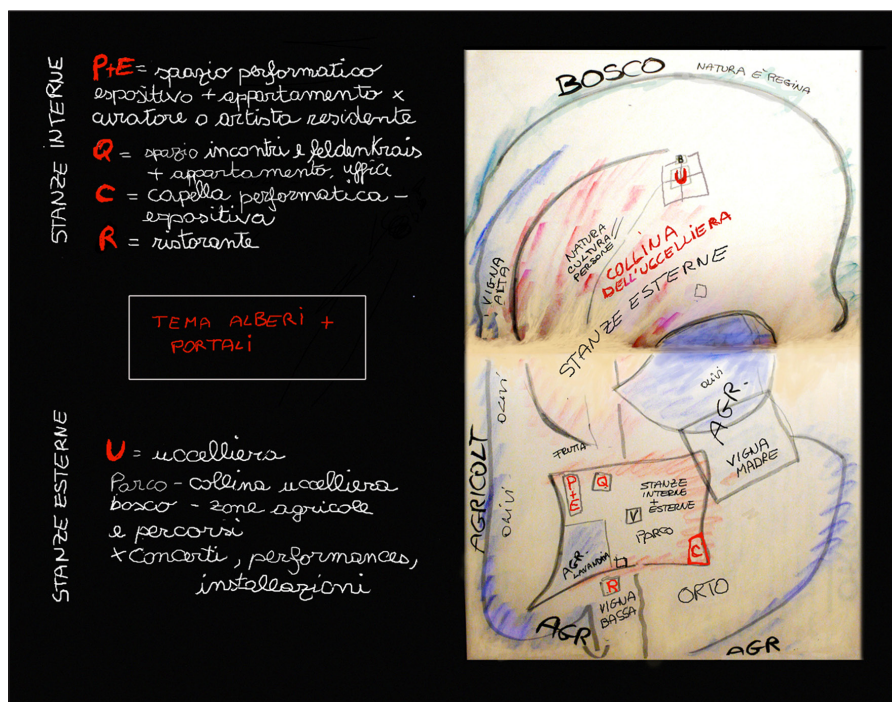 STANZE INTERNE
P+E = spazio performatico
espositivo + appartamento x
curatore o artista residente
Q = spazio incontri e feldenkrais
+ appartamento, uffici
C = capella performatica -
espositiva
R = ristorante
TEMA ALBERI +
PORTALI
STANZE ESTERNE
U = uccelliera
Parco - collina uccelliera
bosco - zone agricole
e percorsi
x concerti, performances,
installazioni
BOSCO
NATURA È REGINA
B
U
NATURA
CULTURA/
PERSONE
COLLINA
DELL'UCCELLIERA
STANZE ESTERNE
VIGNA
ALTA
OLIVI
OLIVI
AGR.
VIGNA
MADRE
AGRICOLT
OLIVI
FRUTTA
P+E
Q
STANZE
INTERNE
+
ESTERNE
V
PARCO
AGR
LAVANDA
C
R
VIGNA
BASSA
ORTO
AGR
AGR